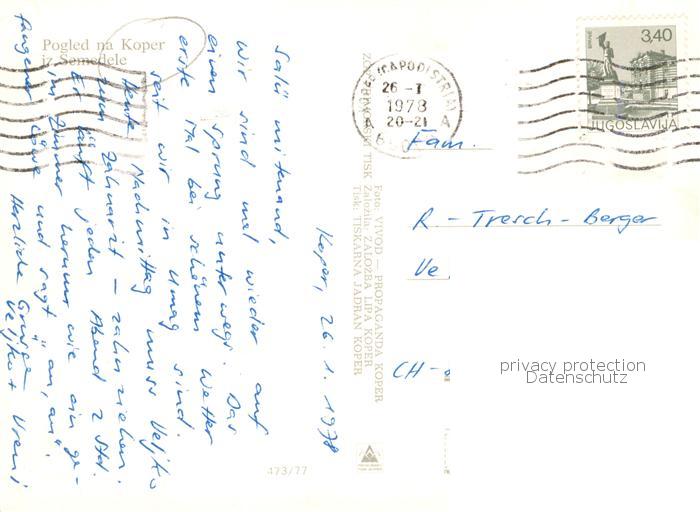 Pogled na Koper
iz Semedele
Koper, 26. 1. 1978
Salü mitenand,
Wir sind mal wieder auf
einen Sprung unterwegs. Das
erste Mal bei schönem Wetter
seit wir in Umag sind.
Heute Nachmittag muss Veljko
zum Zahnarzt – zahnziehen.
Er läuft jeden Abend 2 Std.
im Zimmer herum wie ein ge-
fangener Löwe und sagt "au, au".
Herzliche Grüsse
Veljko + Vreni
473/77
Foto: VIVOD — PROPAGANDA KOPER
Založila: ZALOŽBA LIPA KOPER
Tisk: TISKARNA JADRAN KOPER
TISK
KOPER-CAPODISTRIA
26 -1
1978
20-21
A A
3,40
JUGOSLAVIJA
Fam.
R - Tresch - Berger
Ve
CH -
privacy protection
Datenschutz